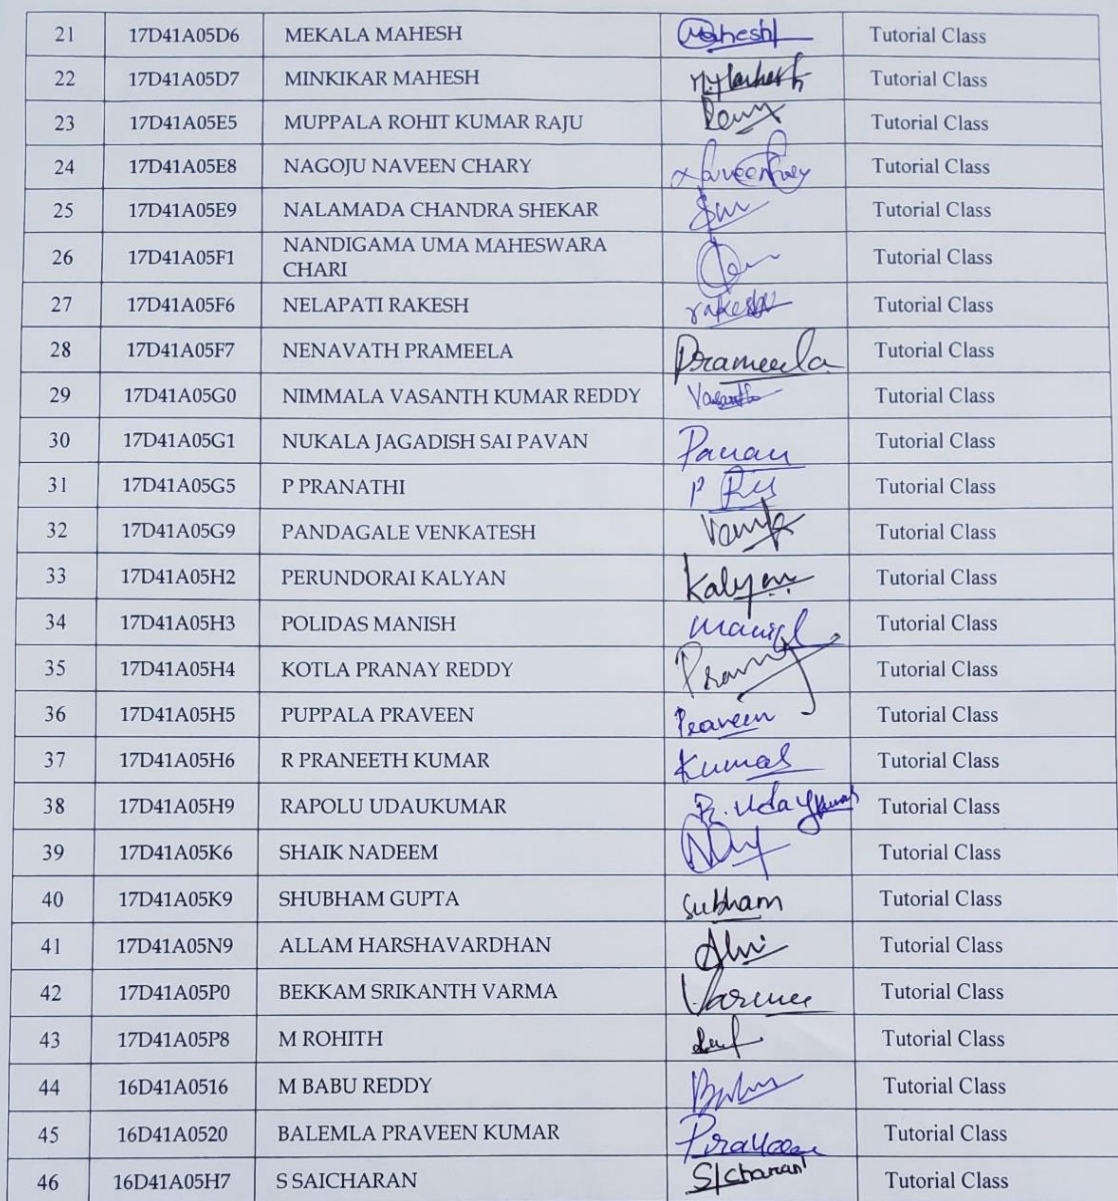 21 17D41A05D6 MEKALA MAHESH Mahesh Tutorial Class
22 17D41A05D7 MINKIKAR MAHESH Tutorial Class
23 17D41A05E5 MUPPALA ROHIT KUMAR RAJU Tutorial Class
24 17D41A05E8 NAGOJU NAVEEN CHARY Tutorial Class
25 17D41A05E9 NALAMADA CHANDRA SHEKAR Tutorial Class
26 17D41A05F1 NANDIGAMA UMA MAHESWARA Tutorial Class
CHARI
27 17D41A05F6 NELAPATI RAKESH rakesh Tutorial Class
28 17D41A05F7 NENAVATH PRAMEELA Prameela Tutorial Class
29 17D41A05G0 NIMMALA VASANTH KUMAR REDDY Vasanth Tutorial Class
30 17D41A05G1 NUKALA JAGADISH SAI PAVAN Pavan Tutorial Class
31 17D41A05G5 P PRANATHI P Tutorial Class
32 17D41A05G9 PANDAGALE VENKATESH Tutorial Class
33 17D41A05H2 PERUNDORAI KALYAN Kalyan Tutorial Class
34 17D41A05H3 POLIDAS MANISH Tutorial Class
35 17D41A05H4 KOTLA PRANAY REDDY Tutorial Class
36 17D41A05H5 PUPPALA PRAVEEN Praveen Tutorial Class
37 17D41A05H6 R PRANEETH KUMAR Kumar Tutorial Class
38 17D41A05H9 RAPOLU UDAUKUMAR R. Udaykumar Tutorial Class
39 17D41A05K6 SHAIK NADEEM Tutorial Class
40 17D41A05K9 SHUBHAM GUPTA Subham Tutorial Class
41 17D41A05N9 ALLAM HARSHAVARDHAN Tutorial Class
42 17D41A05P0 BEKKAM SRIKANTH VARMA Varma Tutorial Class
43 17D41A05P8 M ROHITH Tutorial Class
44 16D41A0516 M BABU REDDY Tutorial Class
45 16D41A0520 BALEMLA PRAVEEN KUMAR Praveen Tutorial Class
46 16D41A05H7 S SAICHARAN S/charan Tutorial Class